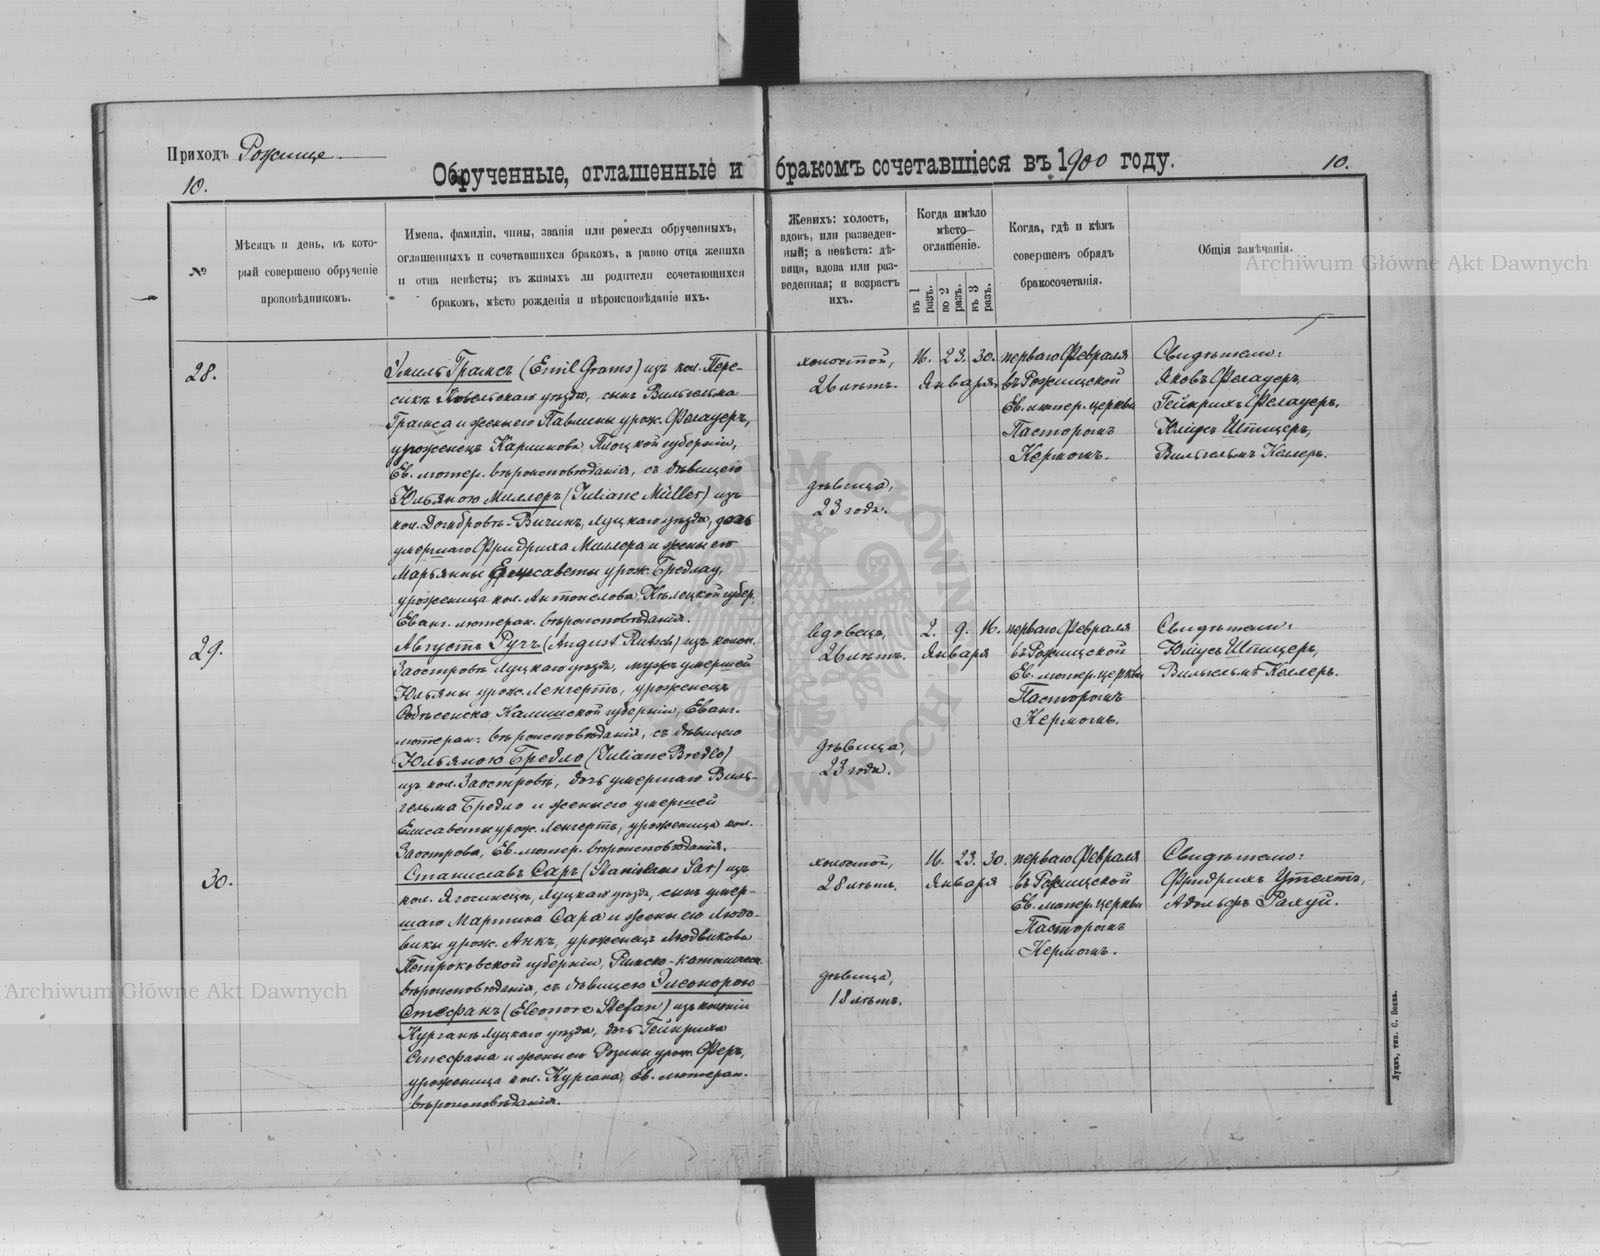 Приходъ Рожище
10.
Обрученные, оглашенные и бракомъ сочетавшіеся въ 1900 году.
10.
№
Мѣсяцъ и день, въ кото-
рый совершено обрученіе
проповѣдникомъ.
Имена, фамиліи, чины, званія или ремесла обрученныхъ,
оглашенныхъ и сочетавшихся бракомъ, а равно отца жениха
и отца невѣсты; въ живыхъ ли родители сочетающихся
бракомъ, мѣсто рожденія и вѣроисповѣданіе ихъ.
Женихъ: холостъ,
вдовъ, или разведен-
ный; а невѣста: дѣ-
вица, вдова или раз-
веденная; и возрастъ
ихъ.
Когда имѣло
мѣсто
оглашеніе.
въ 1 разъ.
во 2 разъ.
въ 3 разъ.
Когда, гдѣ и кѣмъ
совершенъ обрядъ
бракосочетанія.
Общія замѣчанія.
28.
Эмиль Грамсъ (Emil Grams) изъ кол. Пере-
сикъ Ковельскаго уѣзда, сынъ Вильгельма
Грамса и жены его Павлины урож. Фелауеръ,
уроженецъ Карпикова Плоцкой губерніи,
Ев. лютер. вѣроисповѣданія, съ дѣвицею
Юльяною Миллеръ (Juliane Müller) изъ
кол. Домбровъ-Вичинъ, Луцкаго уѣзда, дочь
умершаго Фридриха Миллера и жены его
Марьянны Елисаветы урож. Бредлау,
уроженица кол. Антонелова, Кѣлецкой губер.
Еванг. лютеран. вѣроисповѣданія.
холостой,
26 лѣтъ.
дѣвица,
23 года.
16. 23. 30.
Января
перваго Февраля
въ Рожищской
Ев. лютер. церкви
Пасторомъ
Кермомъ.
Свидѣтели:
Яковъ Фелауеръ,
Гейнрихъ Фелауеръ.
Юліусъ Шпицеръ,
Вильгельмъ Келлеръ.
29.
Августъ Ручъ (August Rutsch) изъ колон.
Заостровъ Луцкаго уѣзда, мужъ умершей
Юльяны урож. Ленгертъ, уроженецъ
Собѣсенска Калишской губерніи, Еванг.
лютеран. вѣроисповѣданія, съ дѣвицею
Юльяною Бредло (Juliane Bredlo)
изъ кол. Заостровъ, дочь умершаго Виль-
гельма Бредло и жены его умершей
Елисаветы урож. Ленгертъ, уроженица кол.
Заострова, Ев. лютер. вѣроисповѣданія.
вдовецъ,
26 лѣтъ.
дѣвица,
23 года.
2. 9. 16.
Января
перваго Февраля
въ Рожищской
Ев. лютер. церкви
Пасторомъ
Кермомъ.
Свидѣтели:
Юліусъ Шпицеръ,
Вильгельмъ Келлеръ.
30.
Станиславъ Саръ (Stanislaus Sar) изъ
кол. Ягосинецъ, Луцкаго уѣзда, сынъ умер-
шаго Мартина Сара и жены его Людо-
вики урож. Анкъ, уроженецъ Людвикова
Петроковской губерніи, Римско-католическ.
вѣроисповѣданія, съ дѣвицею Элеонорою
Стефанъ (Eleonore Stefan) изъ колоніи
Курганъ Луцкаго уѣзда, дочь Гейнриха
Стефана и жены его Розины урож. Феръ,
уроженица кол. Кургана, Ев. лютеран.
вѣроисповѣданія.
холостой,
28 лѣтъ.
дѣвица,
18 лѣтъ.
16. 23. 30.
Января
перваго Февраля
въ Рожищской
Ев. лютер. церкви
Пасторомъ
Кермомъ.
Свидѣтели:
Фридрихъ Утехтъ,
Адольфъ Рахуй.
Луцкъ, тип. С. Бокка.
Archiwum Główne Akt Dawnych
Archiwum Główne Akt Dawnych